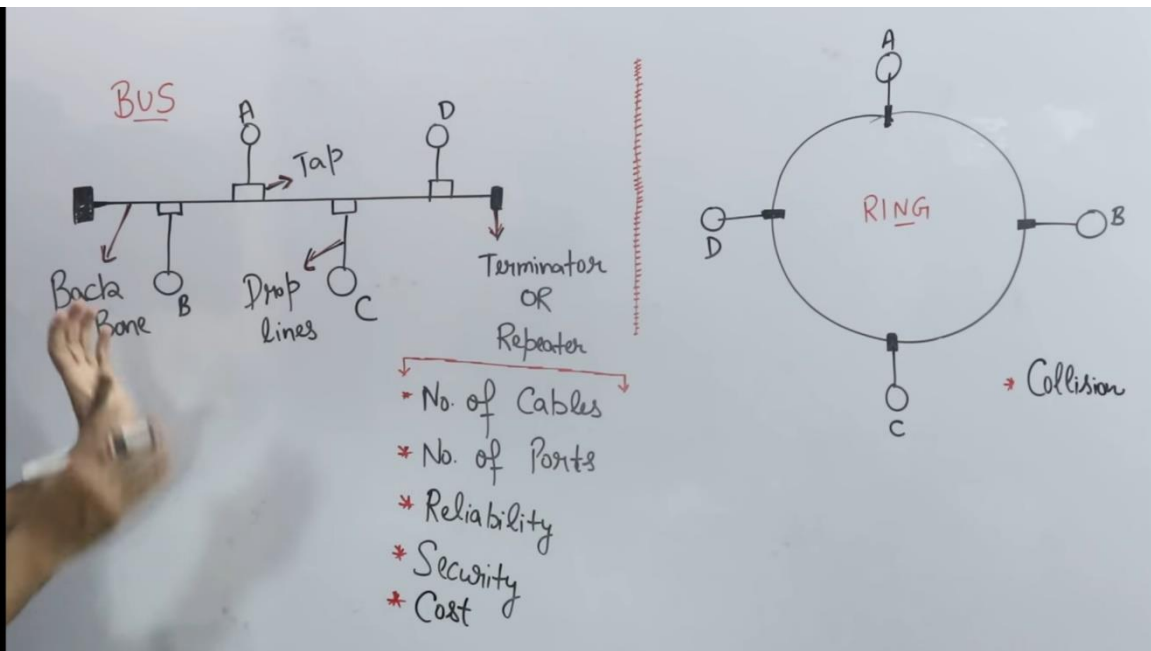 BUS
A
D
Tap
Back
Bone
B
Drop
lines
C
Terminator
OR
Repeater
* No. of Cables
* No. of Ports
* Reliability
* Security
* Cost
A
RING
B
D
C
* Collision